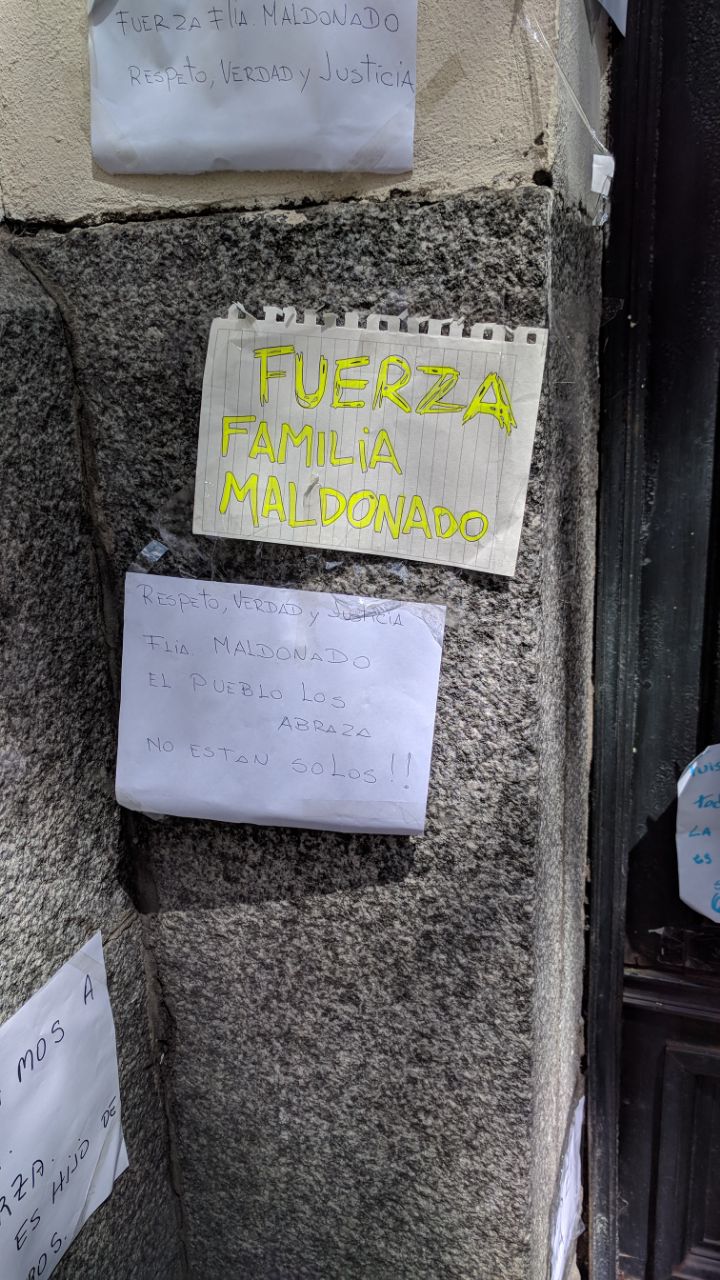 FUERZA Flia. MALDONADO
RESPETO, VERDAD y JUSTICIA
FUERZA
FAMILIA
MALDONADO
RESPETO, VERDAD y JUSTICIA
Flia. MALDONADO
EL PUEBLO LOS
ABRAZA
NO ESTAN SOLOS!!
MOS A
ES HIJO DE
LA
es